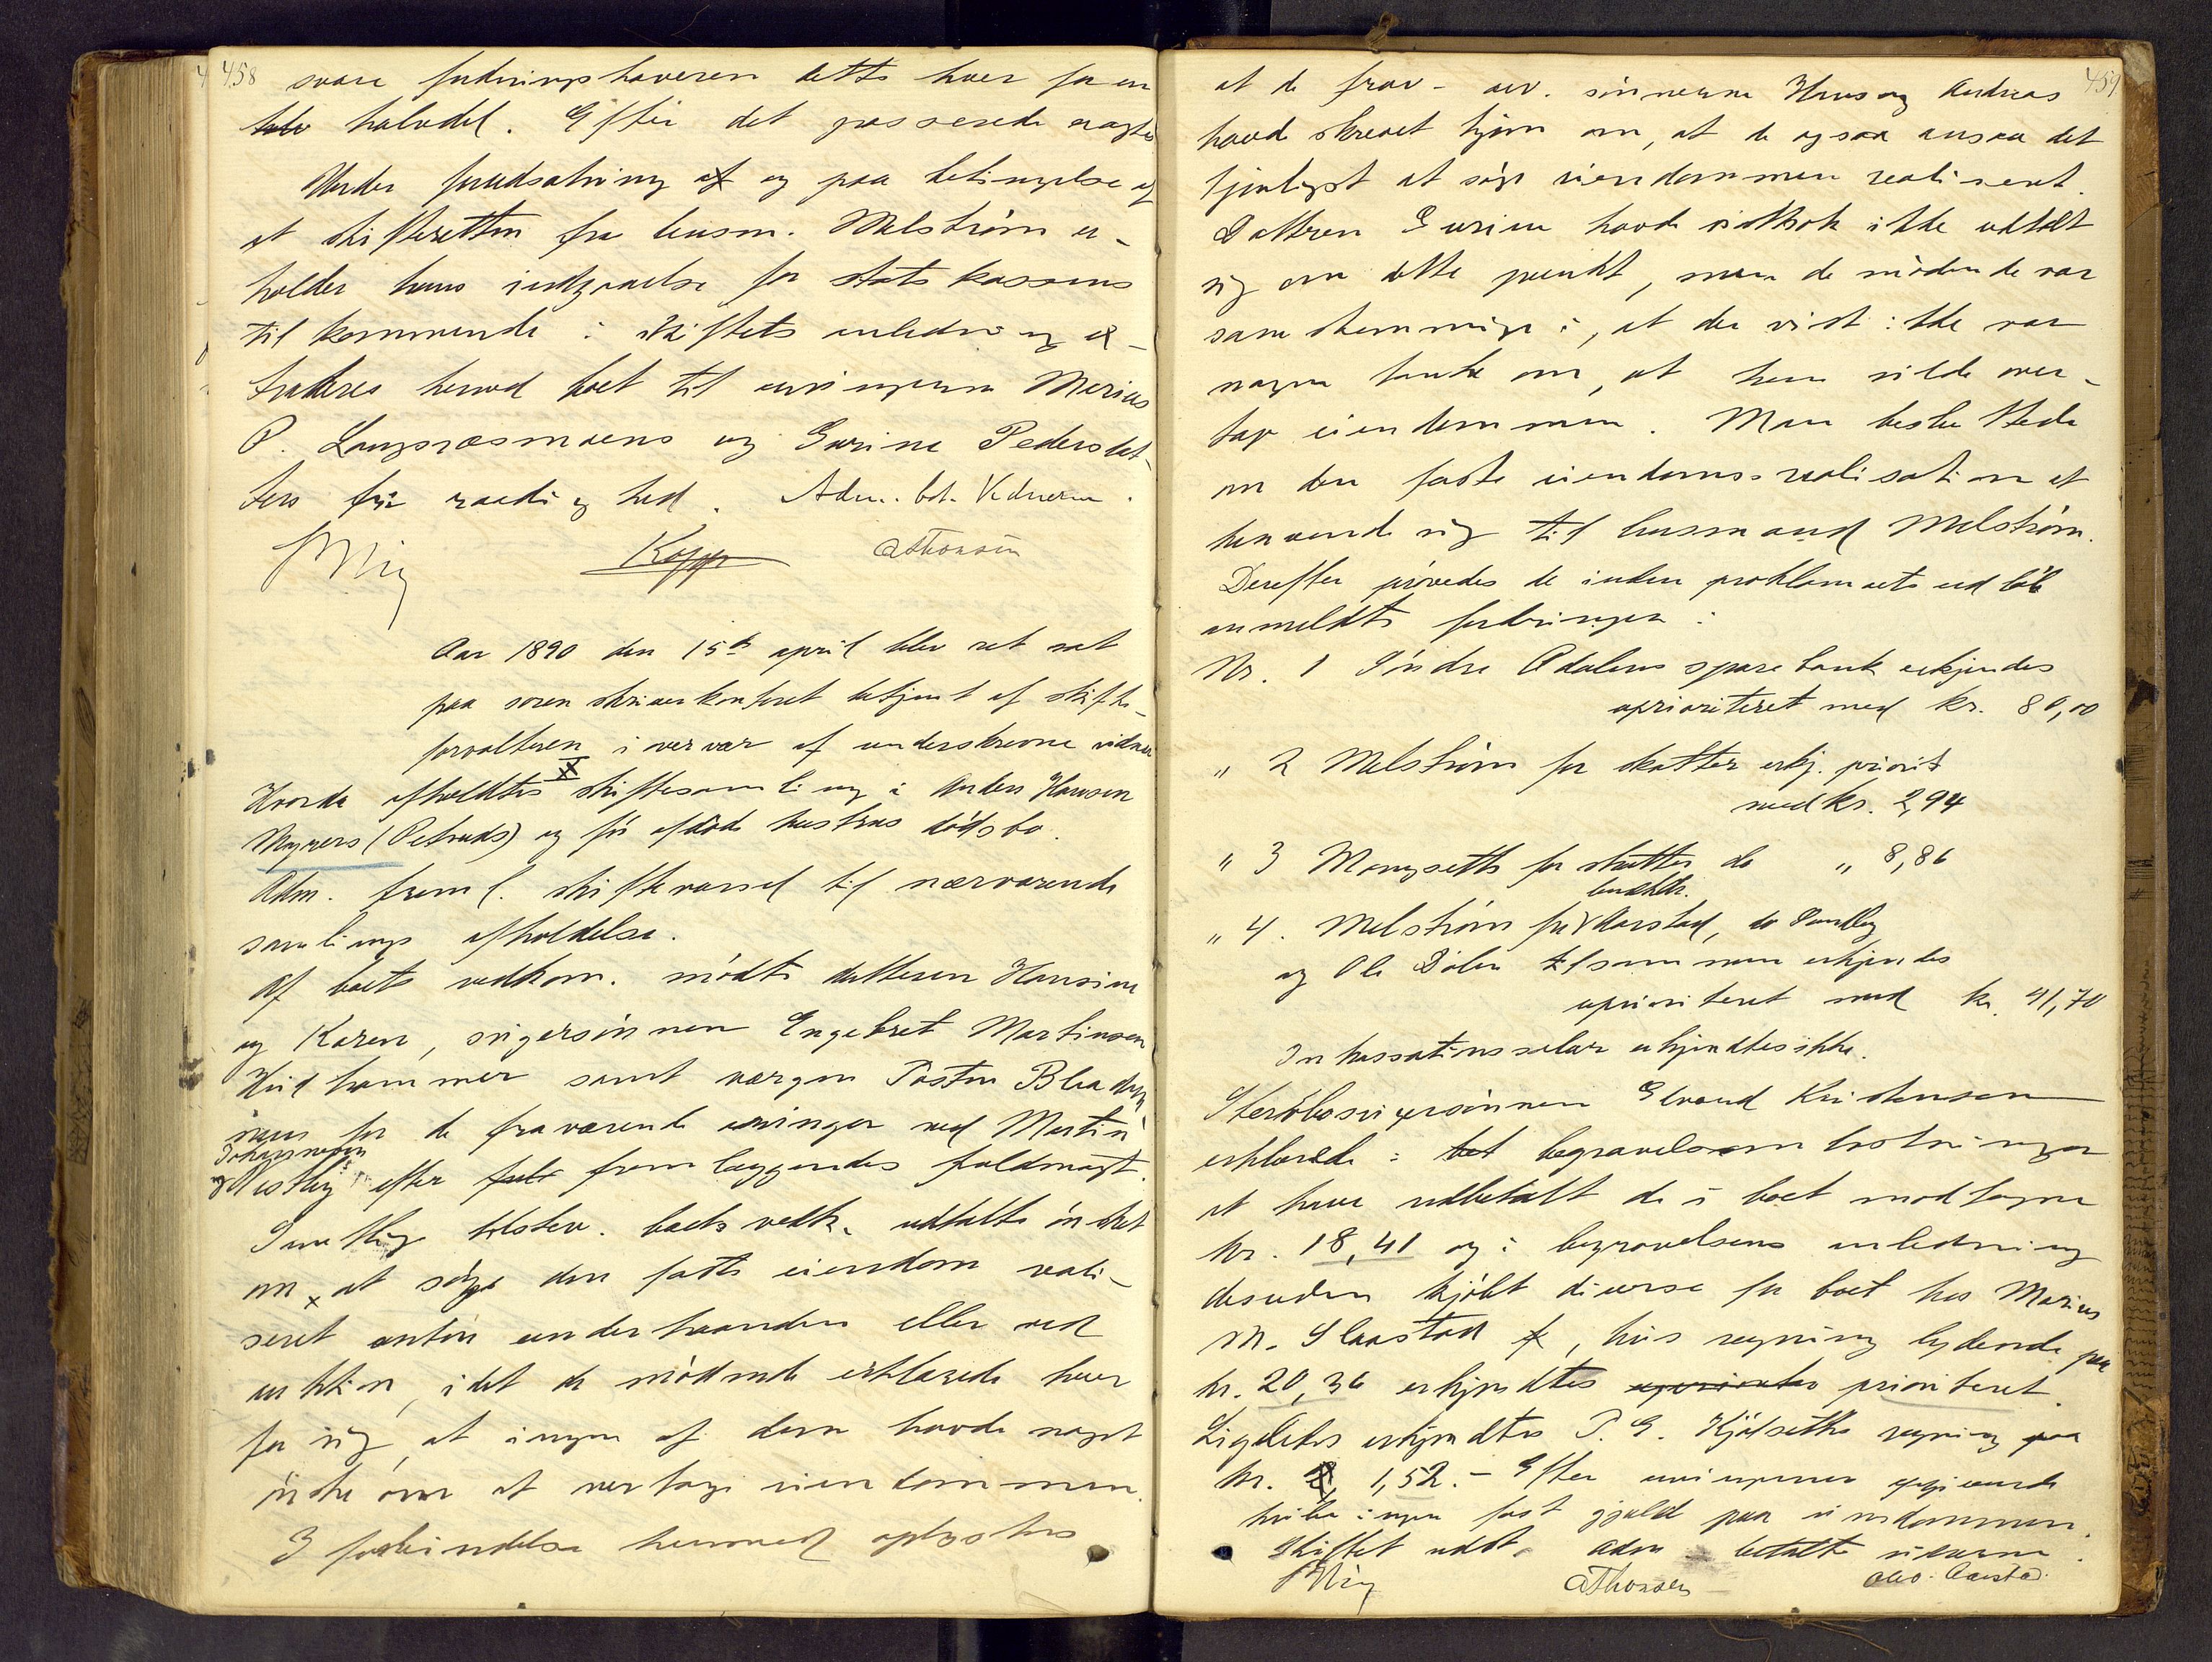 458
svare fordringshaveren dette hver for en
halvdel. Efter det passerede
Under forudsætning af og paa betingelse af
at skifteretten fra lensm. Melström er-
holder hans indgaaelse for statskassens
tilkommende i skiftets anledning ex-
traderes herved boet til arvingerne Marius
P. Langræsmoens og Gurine Pedersdat-
ters frie raadighed. Adm. bet. Vidnerne.
Kopp AThonsen
Aar 1890 den 15de april blev ret sat
paa sorenskriverkontoret betjent af skifte-
forvalteren i overvær af underskrevne vidner
Hvorda afholdtes skiftesamling i Anders Hansen
Myrers (Petruds) og før afdøde hustrus dødsbo.
Adm. freml. skiftevarsel til nærværende
samlings afholdelse.
Af boets vedkom. mødte datteren Hansine
og Karen, svigersønnen Engebret Martinsen
Hindhammer samt værgen Torsten
for de fraværende arvinger ved Martin
Johannesen
efter fremlæggendes fuldmagt.
Samtlig tilstev. boets vedk. udtalte ønsket
om at søge den faste eiendom reali-
seret enten underhaanden eller ved
auktion, idet de mødende erklærede hver
for sig, at ingen af dem havde noget
ønske om at overtage eiendommen.
I forbindelse hermed oplystes
459
at de frav. arv. sønnerne Hans og Andreas
havde skrevet hjem om, at de ogsaa ansaa det
tjenligst at søge eiendommen realiseret.
Datteren Gurine havde vistnok ikke udtalt
sig om dette punkt, men de mødende var
samstemmige i, at der vist ikke var
nogen tanke om, at hun vilde over-
tage eiendommen. Man besluttede
om den faste eiendoms realisation at
henvende sig til lensmand Melström.
Derefter prøvedes de inden proklamaets udløb
anmeldte fordringer:
Nr. 1 Søndre Aadalens sparebank erkjendes
uprioriteret med kr. 80,00
" 2 Melström for skatter erkj. priorit
med kr. 2,94
" 3 for skatter do " 8,86
" 4. Melström for Aarstad, do
og Ole tilsammen erkjendes
uprioriteret med kr. 41,70
Inkassationssalær erkjendtes ikke.
Stervbosvigersønnen Kristensen
erklærede: til begravelsesomkostninger
at have udbetalt de i boet modtagne
kr. 18,41 og i begravelsens anledning
desuden kjøbt diverse for boet hos Marius
M. , hvis regning lydende paa
kr. 20,36 erkjendtes uprioriter prioriteret.
Ligeledes erkjendtes P. G. Kjølseths regning paa
kr. 1,52. - Efter arvingernes opgivende
hviler ingen fast gjæld paa eiendommen.
Skiftet udst. Adm betalte vidnerne.
AThonsen Aarstad.